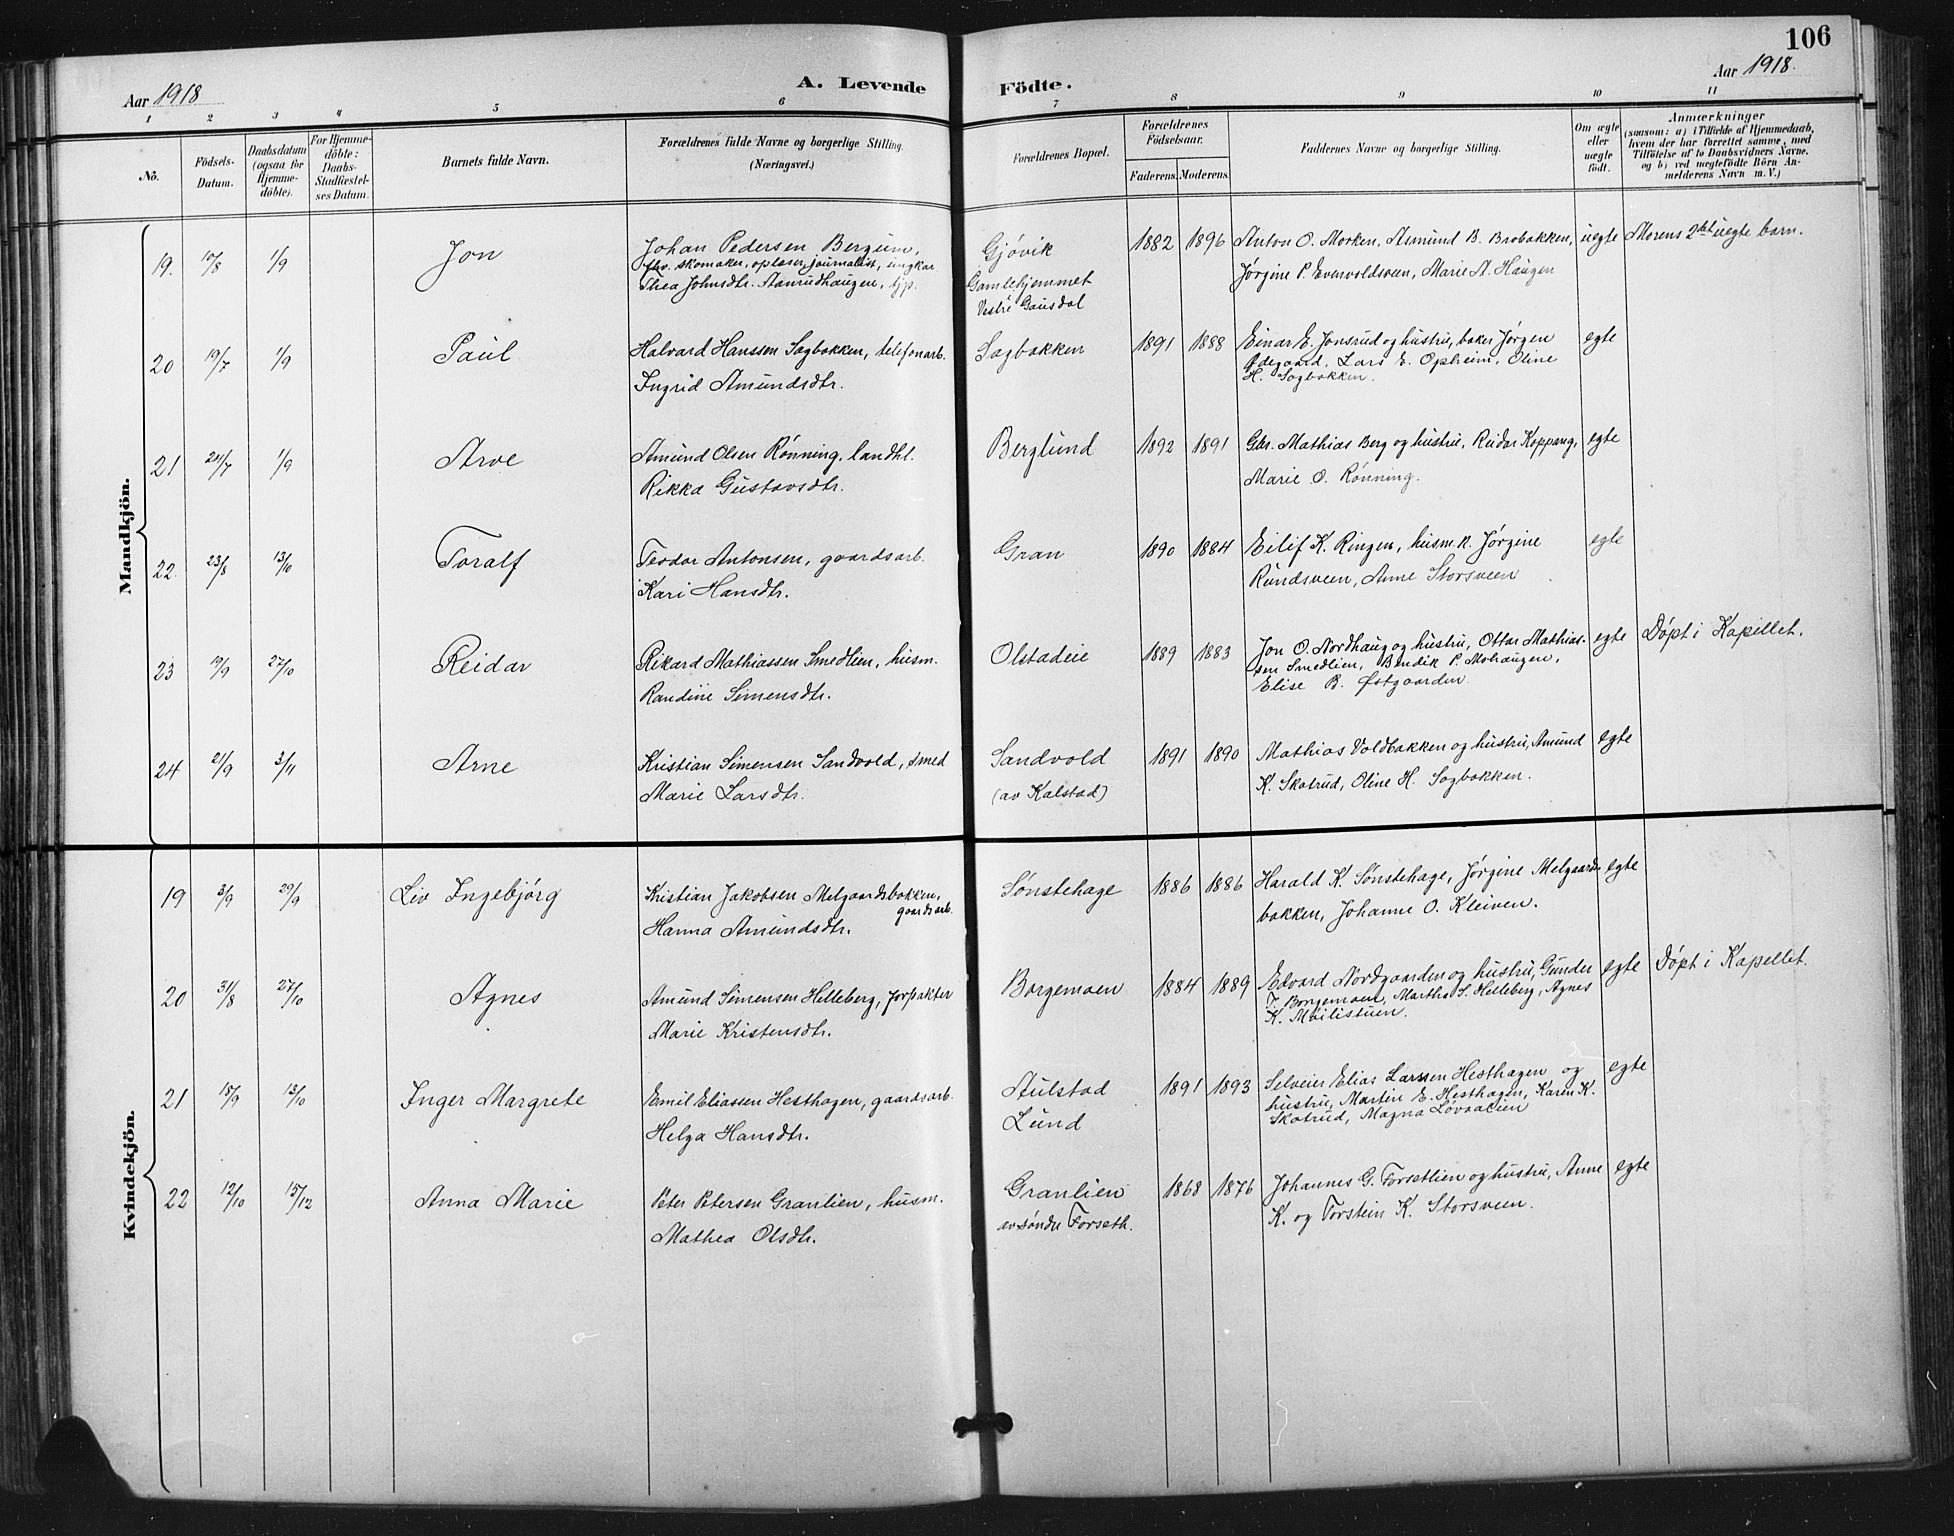 106
Aar 1918
A. Levende Födte.
Aar 1918.
1 2 3 4 5 6 7 8 9 10 11
No.
Födsels-
Datum.
Daabsdatum
(ogsaa for
Hjemme-
döbte).
For Hjemme-
döbte:
Daabs-
Stadfæstel-
ses Datum.
Barnets fulde Navn.
Forældrenes fulde Navne og borgerlige Stilling.
(Næringsvei.)
Forældrenes Bopæl.
Forældrenes
Födselsaar.
Faderens. Moderens.
Faddernes Navne og borgerlige Stilling.
Om ægte
eller
uægte
födt.
Anmærkninger
(saasom: a) i Tilfælde af Hjemmedaab,
hvem der har forrettet samme, med
Tilföielse af to Daabsvidners Navne.
og b) ved uægtefödte Börn An-
melderens Navn m. V.)
Mandkjön.
19. 10/8 1/9 Jon
Johan Pedersen Bergum,
fhv. skomaker, oplæser, journalist, ungkar
Thea Johnsdtr. Staurudhaugen, tjp.
Gjøvik
Gamlehjemmet
Vestre Gausdal
1882 1896
Anton O. Morken, Asmund B. Brobakken,
Jørgine P. Evensvoldsveen, Marie A. Haugen
uegte
Morens 2det uegte barn.
20 19/7 1/9 Paul
Halvard Hanssen Sagbakken, telefonarb.
Ingrid Amundsdtr.
Sagbakken
1891 1888
Einar E. Jonsrud og hustru, baker Jørgen
Ødegaard, Lars E. Opheim, Oline
H. Sagbakken.
egte
21 24/7 1/9 Arve
Amund Olsen Rønning, landhl.
Rikka Gustavsdtr.
Berglund
1892 1891
Gbr. Mathias Berg og hustru, Reidar Koppang,
Marie O. Rønning.
egte
22 23/8 13/10 Toralf
Teodor Antonsen, gaardsarb.
Kari Hansdtr.
Gran
1890 1884
Eilif K. Ringen, husm.k. Jørgine
Rundsveen, Anne Storsveen
egte
23 19/9 27/10 Reidar
Rikard Mathiassen Smedlien, husm.
Randine Simensdtr.
Olstadeie
1889 1883
Jon O. Nordhaug og hustru, Ottar Mathias-
sen Smedlien, Bendik P. Mohaugen,
Elise B. Østgaarden
egte
Døpt i Kapellet.
24 21/9 3/11 Arne
Kristian Simensen Sandvold, smed
Marie Larsdtr.
Sandvold
(av Kalstad)
1891 1890
Mathias Voldbakken og hustru, Amund
K. Skotrud, Oline H. Sagbakken.
egte
Kvindekjön.
19 3/9 29/9 Liv Ingebjørg
Kristian Jakobsen Melgaardsbakken,
gaardsarb.
Hanna Amundsdtr.
Sønstehage
1886 1886
Harald K. Sønstehage, Jørgine Melgaards-
bakken, Johanne O. Kleiven.
egte
20 31/8 27/10 Agnes
Amund Simensen Helleberg, forpakter
Marie Kristensdtr.
Borgemoen
1884 1889
Edvard Nordgaarden og hustru, Gunder
T. Borgemoen, Martha S. Helleberg, Agnes
K. Moilistuen.
egte
Døpt i Kapellet.
21 15/9 13/10 Inger Margrete
Emil Eliassen Hesthagen, gaardsarb.
Helga Hansdtr.
Aulstad
Lund
1891 1893
Selveier Elias Larssen Hesthagen og
hustru, Martin E. Hesthagen, Karen K.
Skotrud, Magna Løvaalien
egte
22 12/10 15/12 Anna Marie
Peter Petersen Granlien, husm.
Mathea Olsdtr.
Granlien
av søndre Forseth.
1868 1876
Johannes G. Forsetlien og hustru, Anne
K. og Torstein K. Storsveen.
egte